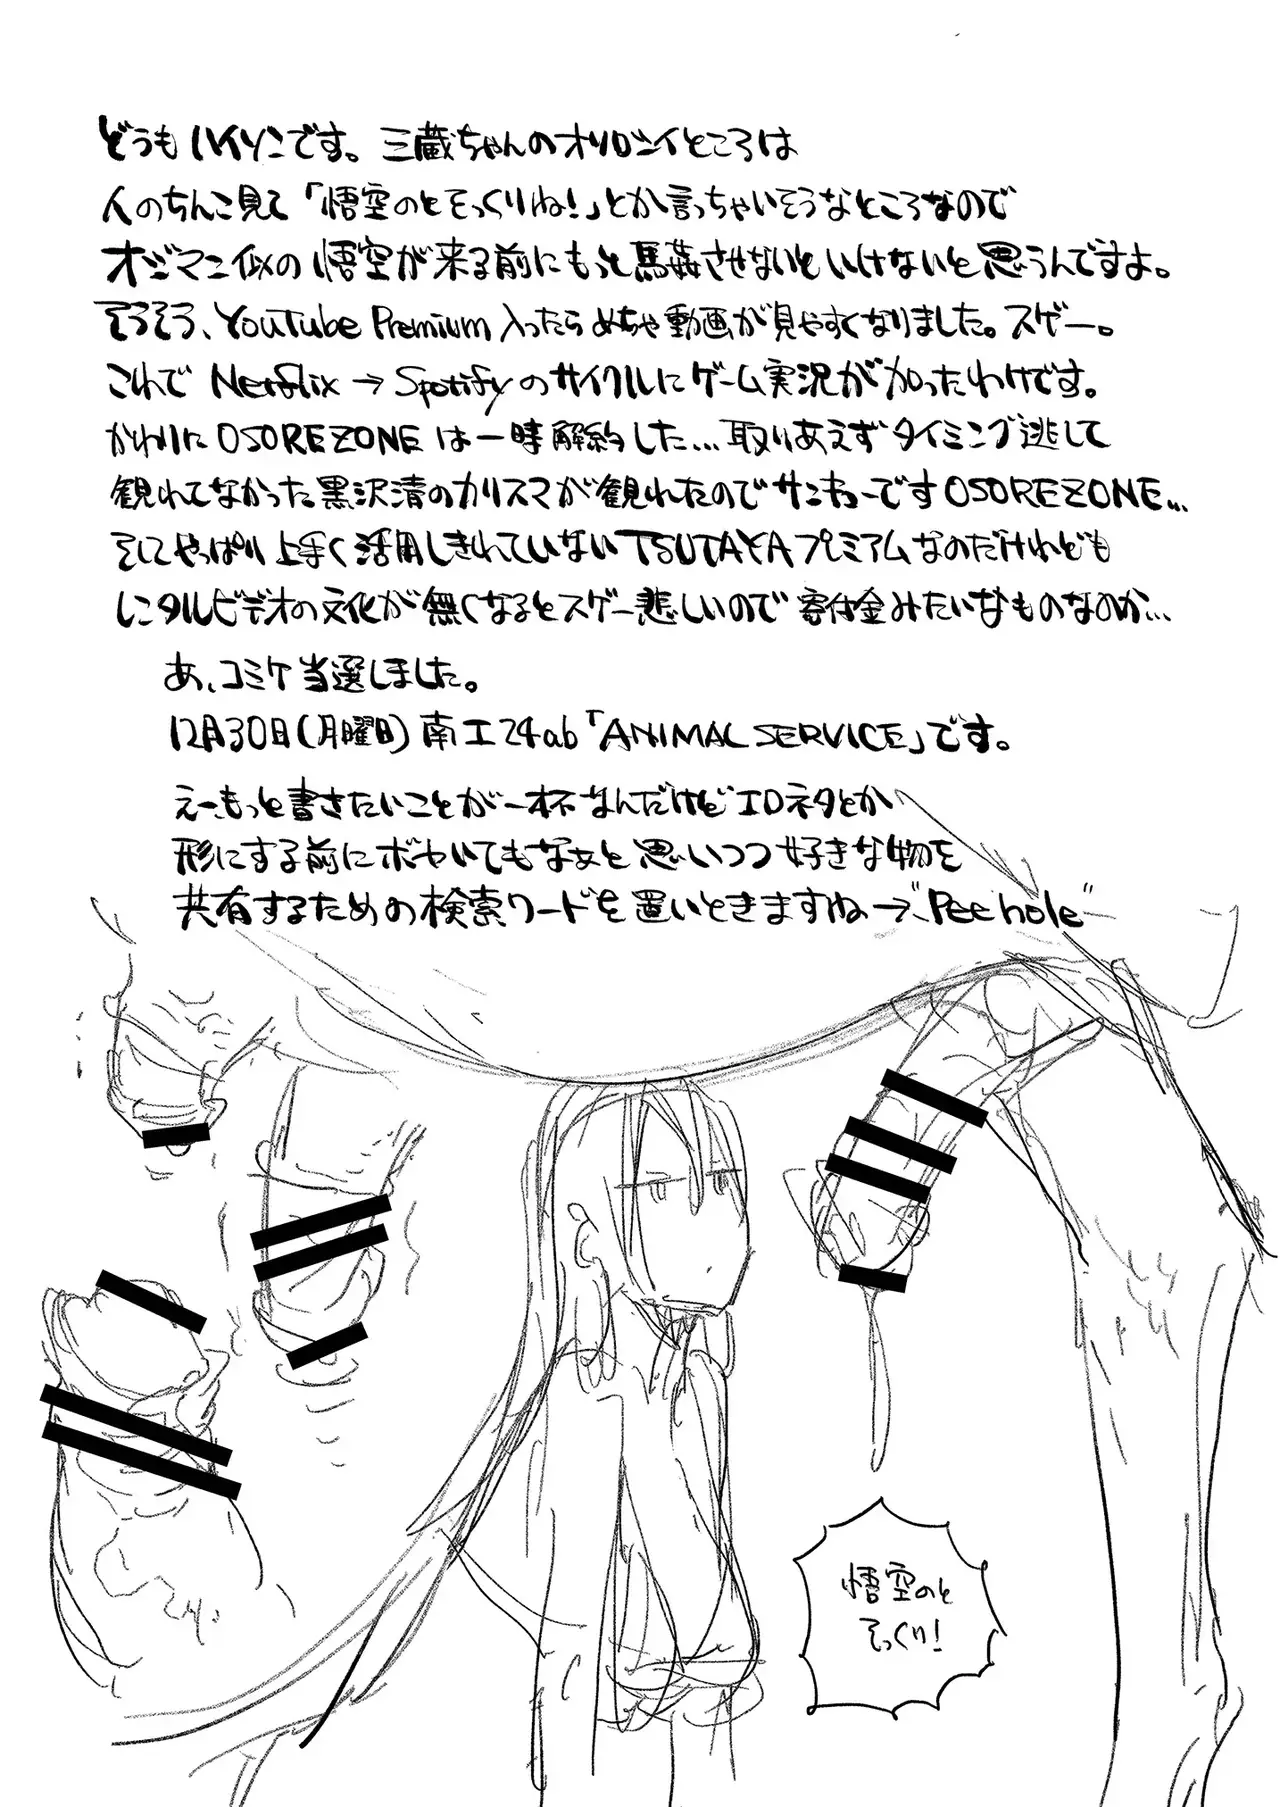 どうもハイソンです。三蔵ちゃんのオリロジイところは
人のちんこ見て「悟空のとそっくりね!」とか言っちゃいそうなところなので
オジマン似の悟空が来る前にもっと馬姦させないといけないと思うんですよ。
そうそう、YouTube Premium入ったらめちゃ動画が見やすくなりました。スゲー。
これでNetflix→Spotifyのサイクルにゲーム実況が加ったわけです。
かわりにOSOREZONEは一時解約した…取りあえずタイミング逃して
観れてなかった黒沢清のカリスマが観れたのでサンキューですOSOREZONE…
そしてやっぱり上手く活用しきれていないTSUTAYAプレミアムなのだけれども
レンタルビデオの文化が無くなるとスゲー悲しいので寄付金みたいなものなのか…
あ、コミケ当選しました。
12月30日(月曜日)南エ24ab「ANIMAL SERVICE」です。
えー、もっと書きたいことが一杯なんだけどエロネタとか
形にする前にボヤいてもなぁと思いつつ好きな物を
共有するための検索ワードを置いときますね→"Pee hole"
悟空のと
そっくり!